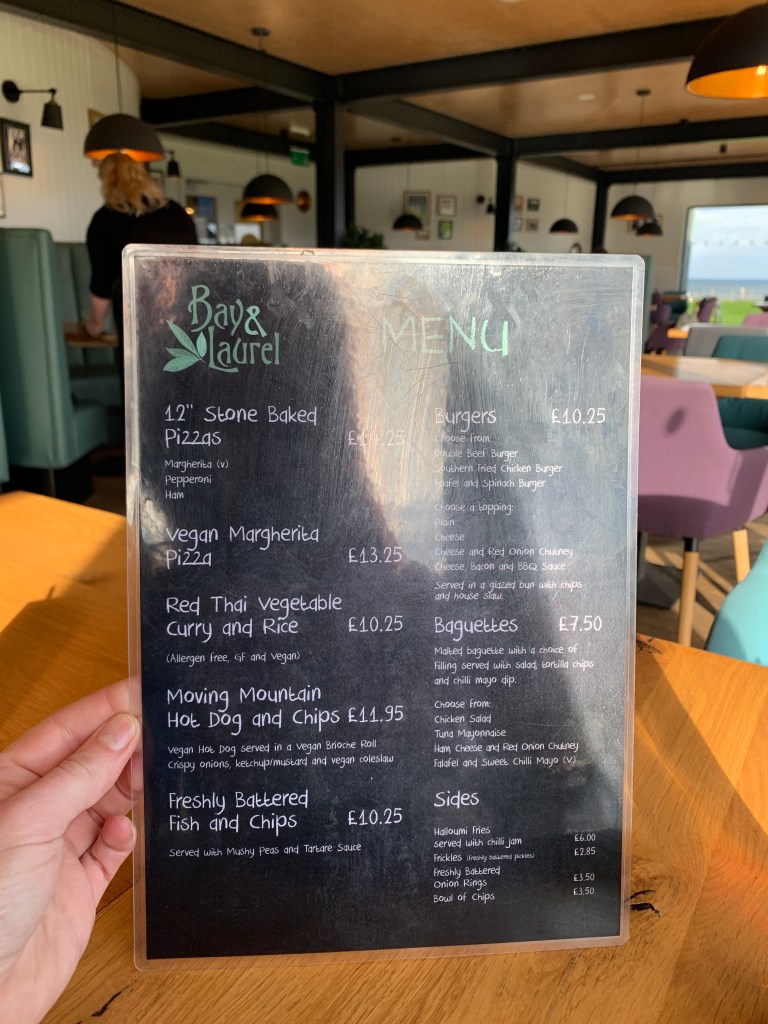 Bay &
Laurel
MENU
12" Stone Baked
Pizzas
Margherita (v)
Pepperoni
Ham
Vegan Margherita
Pizza £13.25
Red Thai Vegetable
Curry and Rice £10.25
(Allergen free, GF and Vegan)
Moving Mountain
Hot Dog and Chips £11.95
Vegan Hot Dog served in a Vegan Brioche Roll
Crispy onions, ketchup/mustard and vegan coleslaw
Freshly Battered
Fish and Chips £10.25
Served with Mushy Peas and Tartare Sauce
Burgers £10.25
Choose from:
Double Beef Burger
Southern Fried Chicken Burger
Falafel and Spinach Burger
Choose a topping:
Plain
Cheese
Cheese and Red Onion Chutney
Cheese, Bacon and BBQ Sauce
Served in a glazed bun with chips
and house slaw.
Baguettes £7.50
Malted baguette with a choice of
filling served with salad, tortilla chips
and chilli mayo dip.
Choose from:
Chicken Salad
Tuna Mayonnaise
Ham, Cheese and Red Onion Chutney
Falafel and Sweet Chilli Mayo (V)
Sides
Halloumi Fries
served with chilli jam £6.00
Frickles (freshly battered pickles) £2.85
Freshly Battered
Onion Rings £3.50
Bowl of Chips £3.50